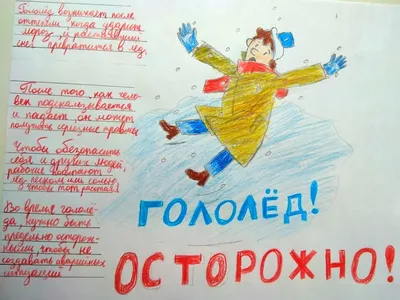 Гололёд возникает после
оттепели, когда ударит
мороз, и растаявший
снег превратится в лёд.
После того, как чело-
век подскальзывается
и падает, он может
получить серьезные травмы
Чтобы обезопасить
себя и других людей,
рабочие посыпают
лёд песком или солью,
чтобы тот растаял
Во время гололё-
да, нужно быть
предельно осторож-
ными, чтобы не
создавать аварийных
ситуаций
ГОЛОЛЁД!
ОСТОРОЖНО!